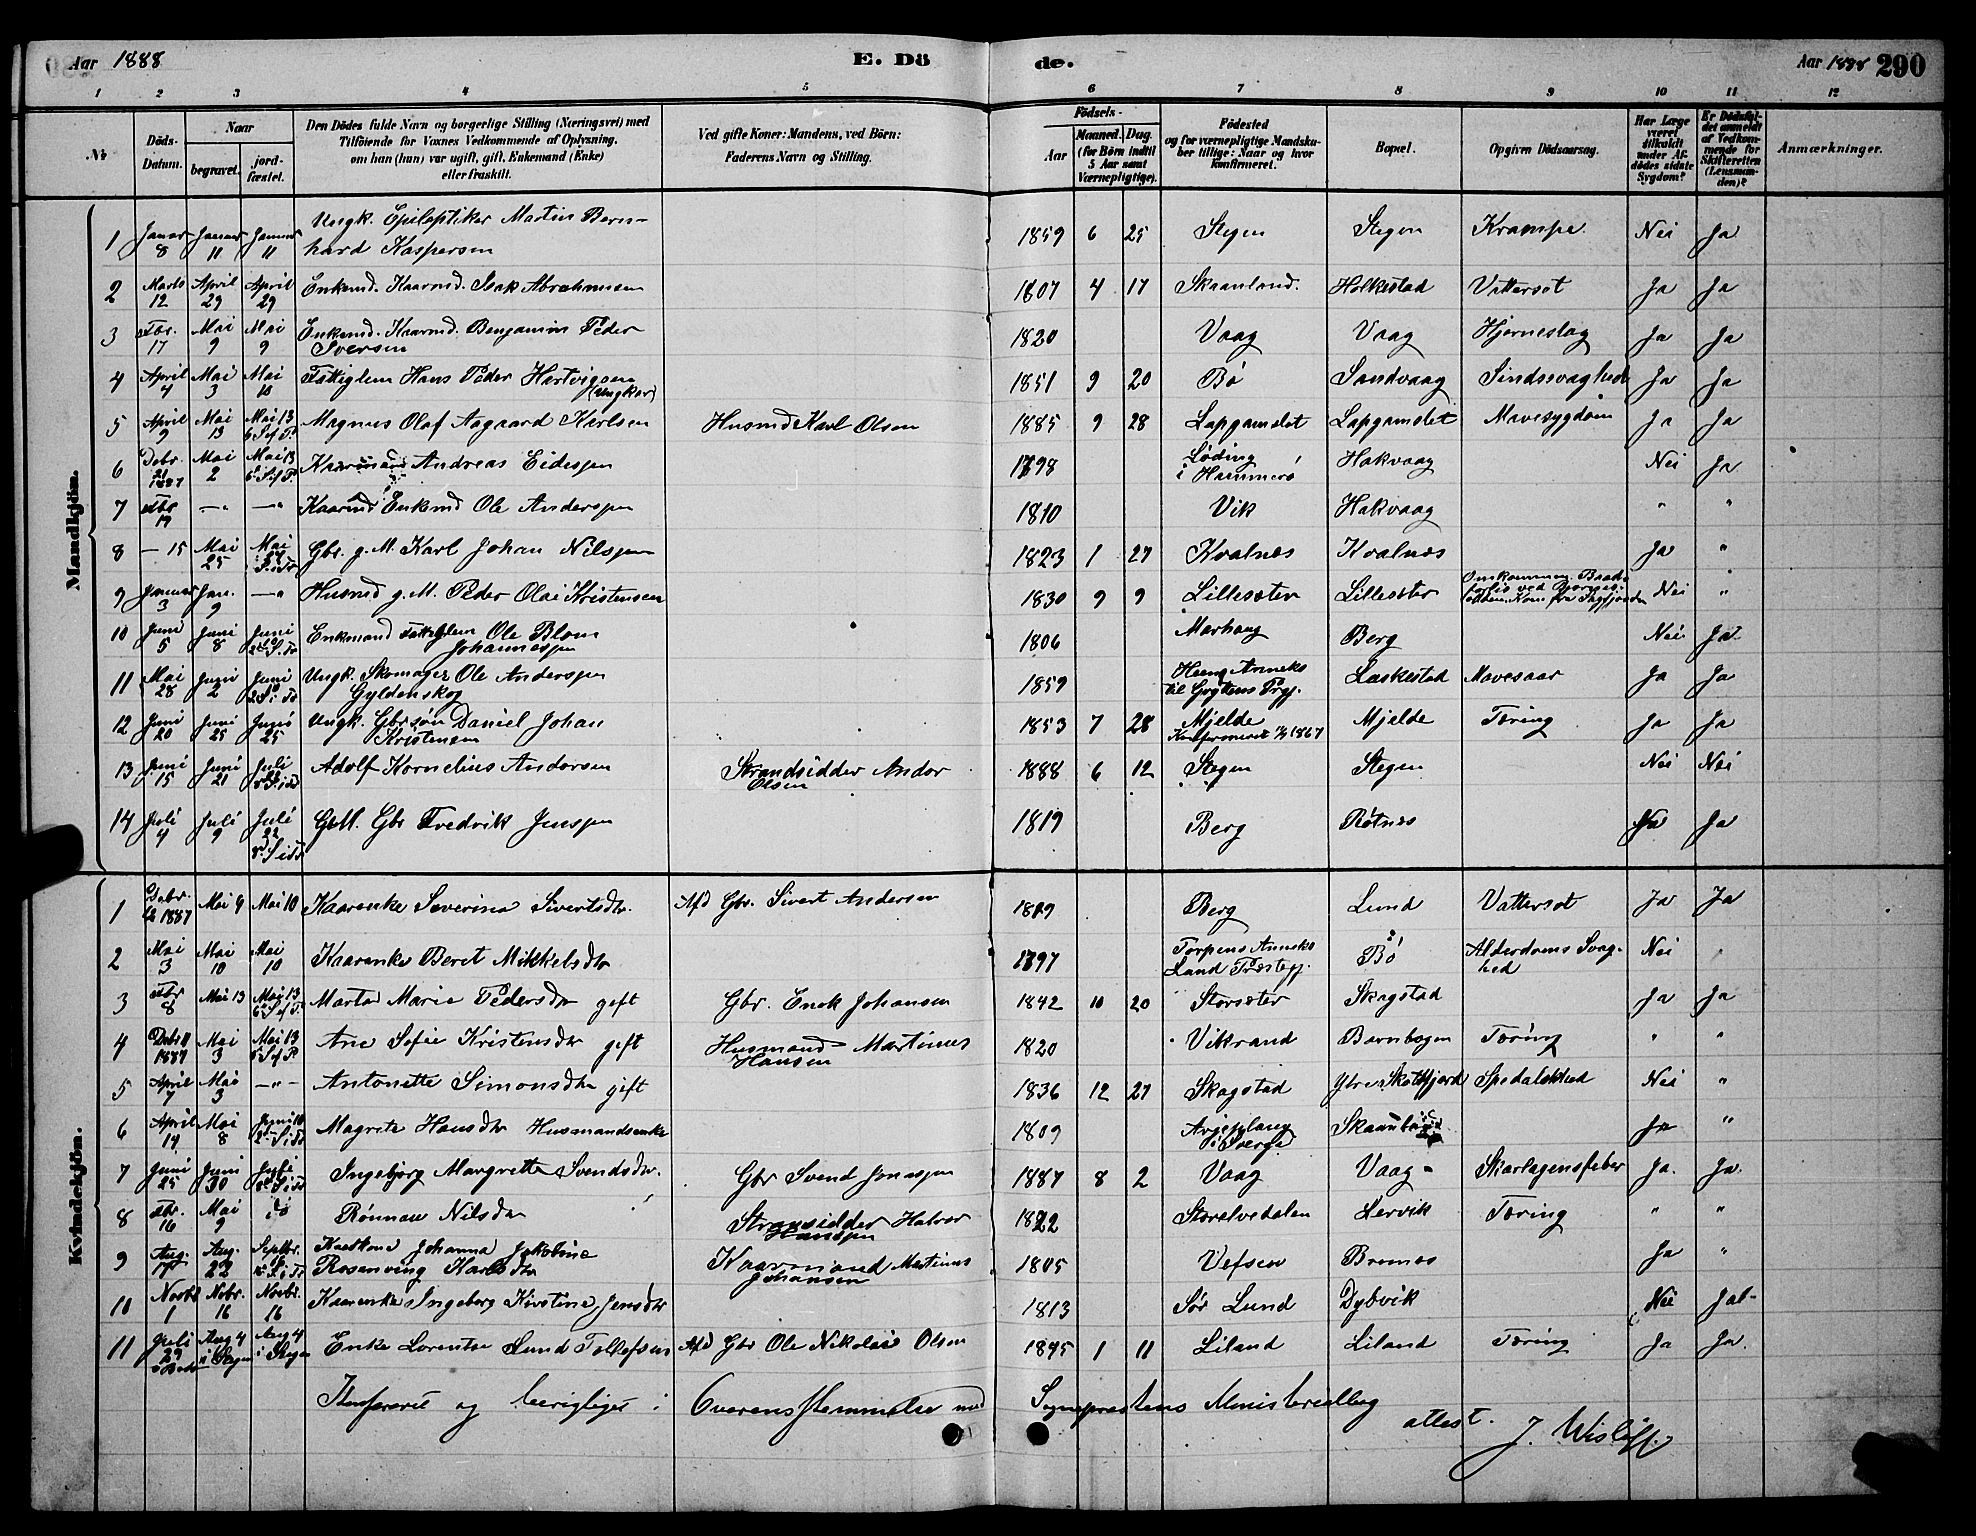 Aar 1888 E. Dö de. Aar 1888 290
1 2 3 4 5 6 7 8 9 10 11 12
Nr.
Döds-Datum.
Naar
begravet.
jord-fæstet.
Den Dödes fulde Navn og borgerlige Stilling (Næringsvei) med
Tilföiende for Voxnes Vedkommende af Oplysning,
om han (hun) var ugift, gift, Enkemand (Enke)
eller fraskilt.
Ved gifte Koner: Mandens, ved Börn:
Faderens Navn og Stilling.
Födsels-
Aar
Maaned. Dag.
(for Börn indtil
5 Aar samt
Værnepligtige).
Födested
og for værnepligtige Mandska-
ber tillige: Naar og hvor
konfirmeret.
Bopæl.
Opgiven Dödsaarsag.
Har Læge
været
tilkaldt
under Af-
dödes sidste
Sygdom?
Er Dödsfal-
det anmeldt
af Vedkom-
mende for
Skifteretten
(Lensman-
den)?
Anmærkninger.
Mandkjön.
1 Januar 8 Januar 11 Januar 11 Ungk. Epileptiker Martin Bern-
hard Kaspersen 1859 6 25 Stegen Stegen Krampe. Nei Ja
2 Marts 12 April 29 April 29 Enkemd. Kaarmd. Isak Abrahamsen 1807 4 17 Skaanland. Holkestad Vattersot Ja Ja
3 Fbr. 17 Mai 9 Mai 9 Enkemd. Kaarmd. Benjamin Peder
Iversen 1820 Vaag Vaag Hjerneslag Ja Ja
4 April 4 Mai 3 Mai 10 Fattiglem Hans Peder Hartvigsen
(Ungkar) 1851 9 20 Bö Sandvaag Sindssvaghed Ja Ja
5 April 9 Mai 13 Mai 13 Magnus Olaf Aagaard Karlsen Husmd Karl Olsen 1885 9 28 Lapgamslet Lapgamslet Mavesygdom Ja Ja
6 Debr. 21 1887 Mai 2 Mai 13 Kaarmand Andreas Eidespen 1798 Löding
i Hammerö Hakvaag Nei Ja
7 Fbr 19 —"— —"— Kaarmd Enkemd Ole Anderspen 1810 Vik Hakvaag " "
8 — 15 Mai 25 Mai 27 Gbr. g. M. Karl Johan Nilspen 1823 1 27 Kvalnæs Kvalnæs Ja "
9 Januar 3 Jan. 9 —"— Husmd g. M. Peder Olai Kristensen 1830 9 9 Lillesæter Lillesæter Nei "
10 Juni 5 Juni 8 Juni Enkemand Fattiglem Ole Blom
Johannespen 1806 Marhaug Berg Nei Ja
11 Mai 28 Juni 2 Juni Ungk. Skomager Ole Anderspen
Gyldenskog 1859 Anneks
til Laskestad Mavesaar Ja Ja
12 Juni 20 Juni 25 Juni 25 Ungk. Gbrsön Daniel Johan
Kristensen 1853 7 28 Mjelde
Konfirmeret 1867 Mjelde Tæring Ja Ja
13 Juni 15 Juni 21 Juli Adolf Kornelius Andorsen Strandsidder Andor
Olsen 1888 6 12 Stegen Stegen Nei Nei
14 Juli 4 Juli 9 Juli 22 G.M. Gbr Fredrik Jenspen 1819 Berg Rötnæs Ja Ja
Kvindekjön.
1 Debr. 1887 Mai 9 Mai 10 Kaarenke Severine Sivertsdtr. Afd Gbr. Sivert Andersen 1819 Berg Lund Vattersot Ja Ja
2 Mai 3 Mai 10 Mai 10 Kaarenke Beret Mikkelsdtr 1797 Torpens Anneks
Land Præstegj. Bö Alderdoms Svag-
hed Nei "
3 Fbr 8 Mai 13 Mai 13 Marta Marie Pedersdtr gift Gbr. Enok Johansen 1842 10 20 Storsæter Skagstad Ja Ja
4 Debr 1887 Mai 3 Mai 13 Ane Sofie Kristensdtr gift Husmand Martinus
Hansen 1820 Vikrand Bornbogen Tæring " "
5 April 7 Mai 3 —"— Antonette Simonsdtr gift 1836 12 27 Skagstad Ytre Skotfjord Spedalskhed Nei "
6 April 14 Mai 8 Juni 10 Magrete Hansdtr Husmandsenke 1809 Arjepplaug
i Sverge Ja "
7 Juni 25 Juni 30 Juli Ingebjörg Margrette Svendsdtr. Gbr Svend Jenspen 1887 8 2 Vaag Vaag Skarlagensfeber Ja. Ja.
8 Fbr. 16 Mai 9 do Rönnau Nilsdtr Strandsidder Halvor
Hanspen 1822 Storelvedalen Lervik Tæring " "
9 Aug. 17 Aug. 22 Septbr. Johanna Jakobine
Rosenving Karlsdtr Kaarmand Martinus
Johansen 1805 Vefsen Bremnes Ja "
10 Novbr 1 Nobr. 16 Novbr. 16 Kaarenke Ingeborg Kirstine Jensdtr 1813 Sör Lund Dybvik Nei Ja
11 Juli 29 Aug 4 i Stegen Aug 4 i Stegen Enke Lorentse Lund Tollefsen Afd Gbr Ole Nikolai Olsen 1845 1 11 Liland Liland Tæring Ja Ja.
Konfereret og berigtiget i Overensstemmelse med Sognepræstens Ministerialbog
attest. J. Wislöff.